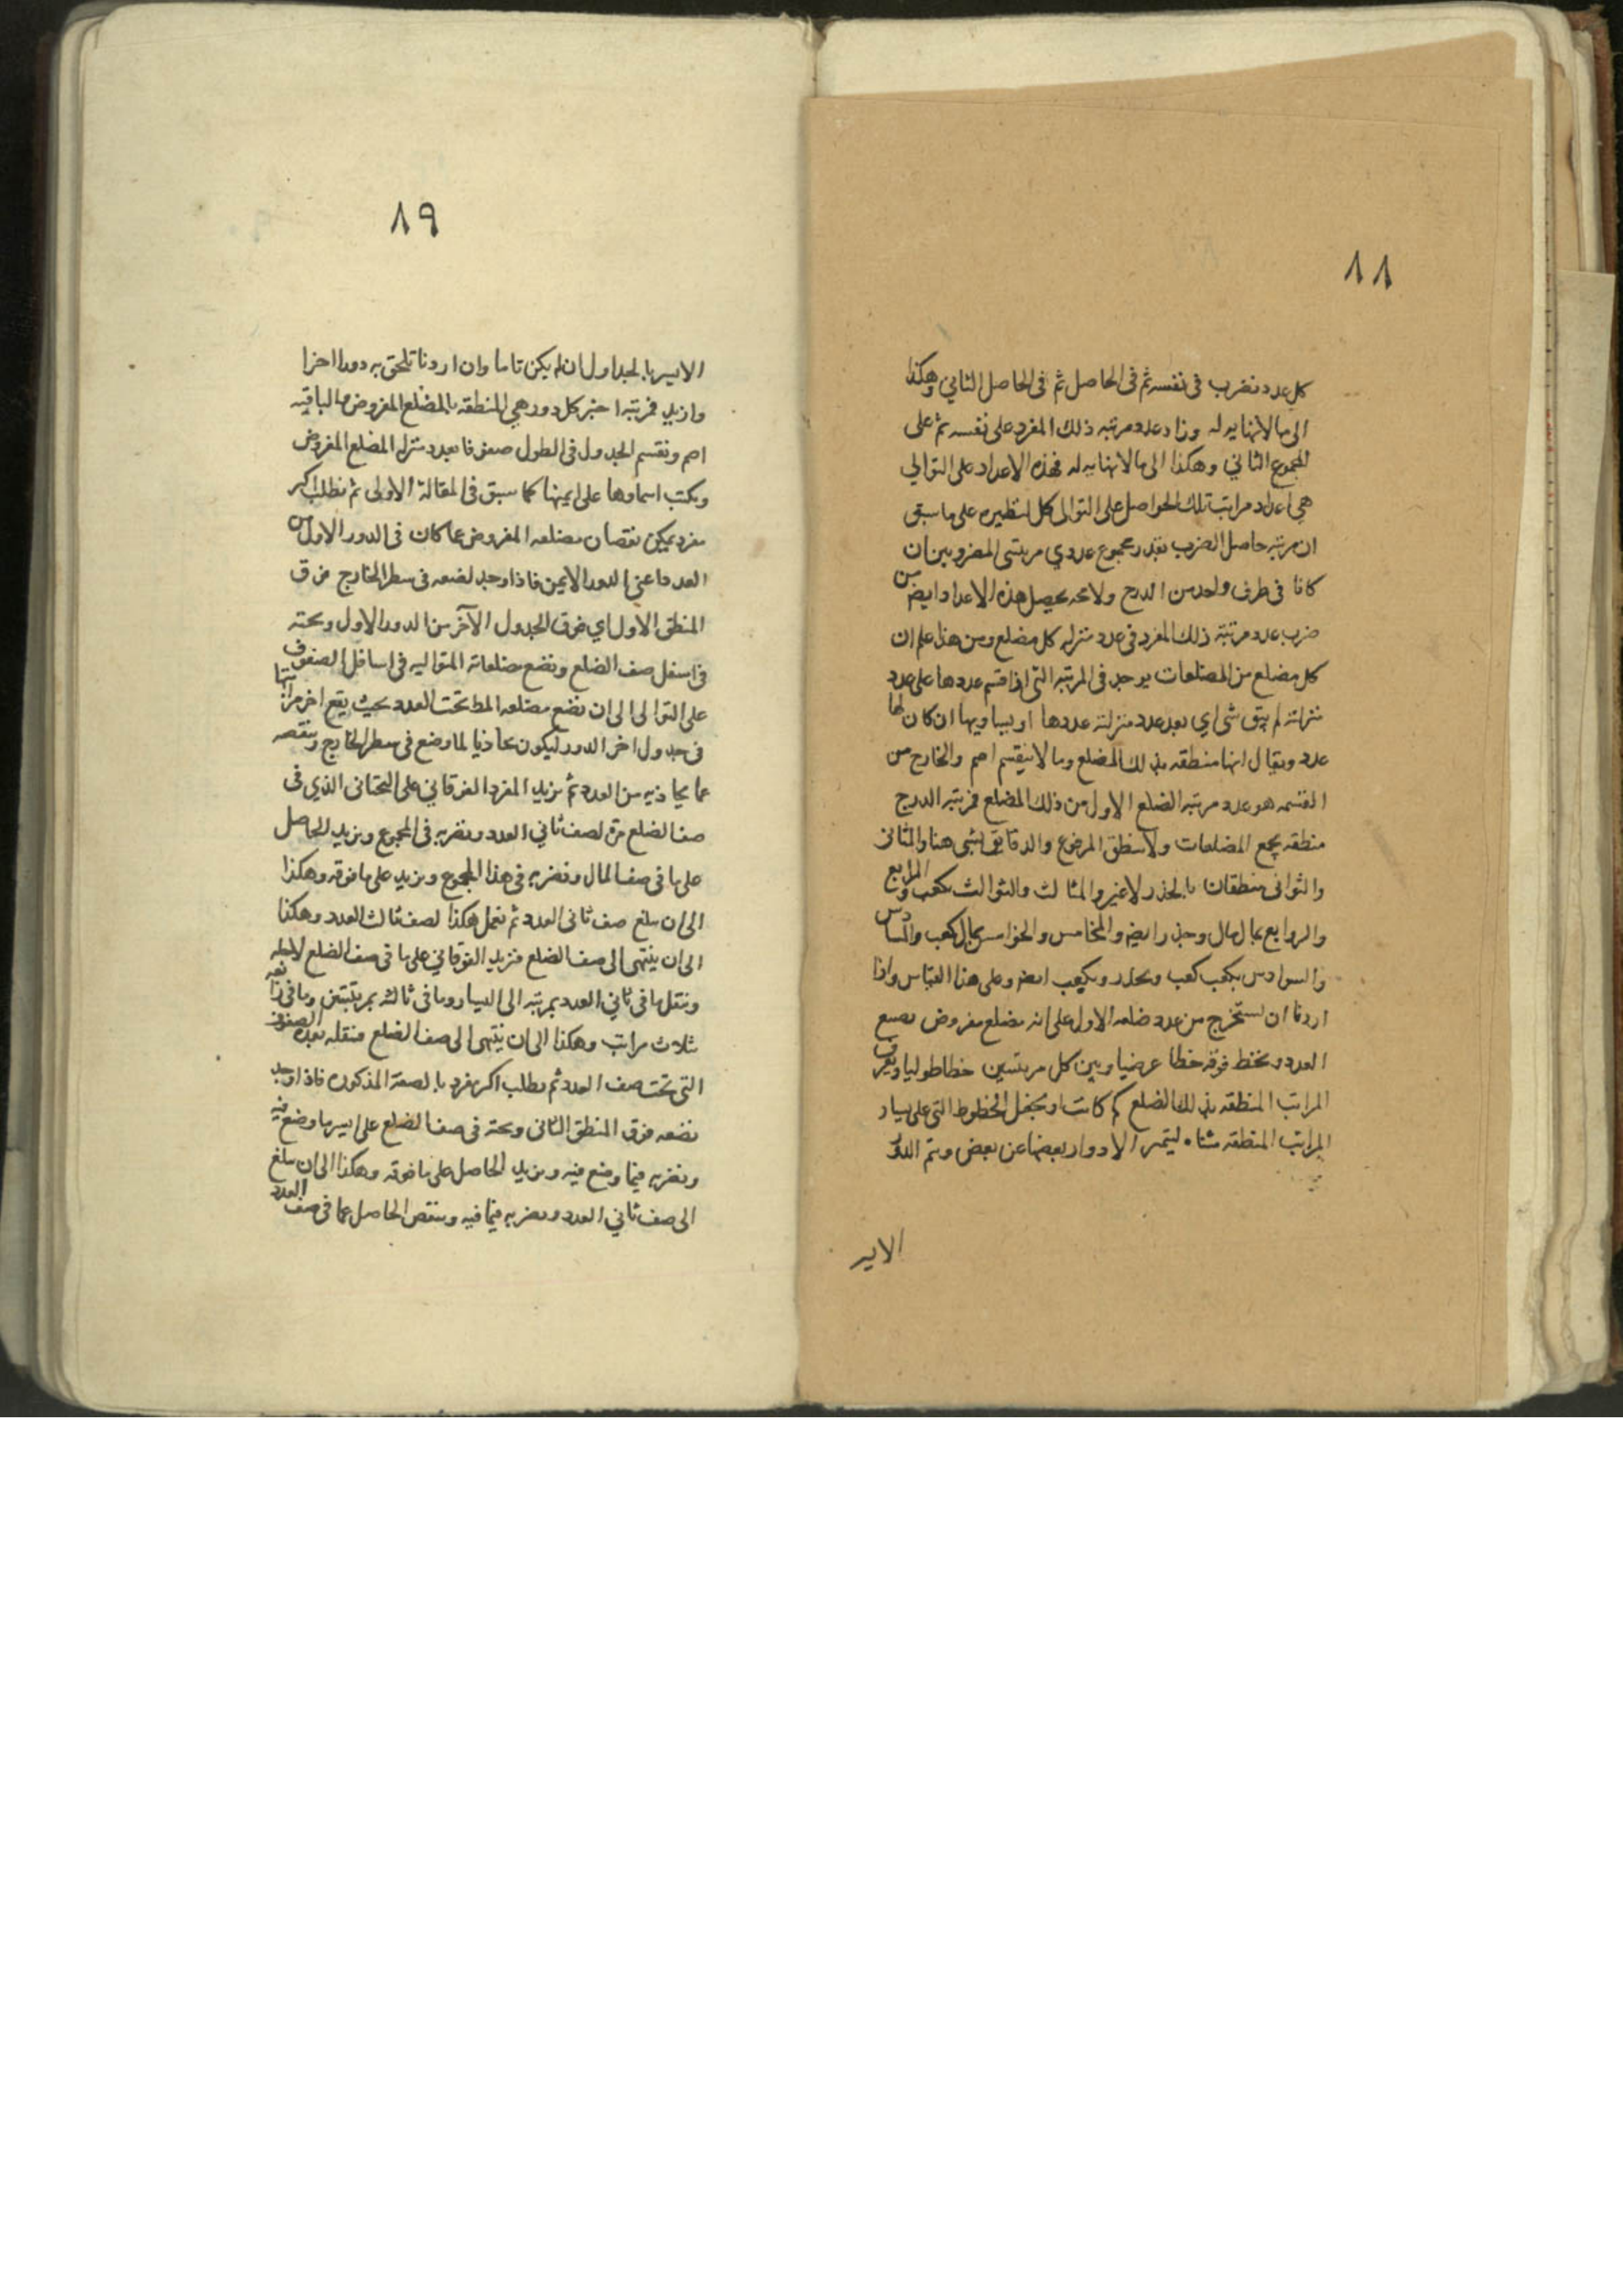 ٨٨
كل عدد نضرب فى نفسه ثم فى الحاصل ثم فى الحاصل الثاني وهكذا
الى ما لانهايه له وزاد عدد مرتبه ذلك المفرد على نفسه ثم على
المجموع الثاني وهكذا الى ما لانهايه له فهذه الاعداد على التوالي
هي اعداد مراتب تلك الحواصل على التوالى كل لنظيره على ما سبق
ان مرتبه حاصل الضرب بقدر مجموع عددي مرتبتى المضروبين ان
كانا فى طرف واحد من الدرج يحصل هذه الاعداد ايضا من
ضرب عدد مرتبة ذلك المفرد فى عدد منزله كل مضلع ومن هذا علم ان
كل مضلع من المضلعات يوجد فى المرتبه التى اذا قسم عددها على عدد
منزلته لم يبق شى اي يعد عدد منزلته عددها او يساويها ان كان لها
عدد ويقال انها منطقه بذلك المضلع وما لا ينقسم اصم والخارج من
القسمه هو عدد مرتبه الضلع الاول من ذلك المضلع فمرتبه الدرج
منطقه بجميع المضلعات ولا منطق المرفوع والدقايق بشى هنا والمثانى
والثوانى منطقان بالجذر لا غير والمثالث والثوالث بكعب والمرابع
والروابع بمال مال وجذر ايضا والمخامس والخوامس بمال كعب والمسادس
والسوادس بكعب كعب وبجذر وبكعب ايضا وعلى هذا القياس واذا
اردنا ان نستخرج من عدد ضلعه الاول على انه مضلع مفروض نضع
العدد ونخط فوقه خطا عرضيا وبين كل مرتبتين خطا طوليا ونعرف
المراتب المنطقه بذلك الضلع كم كانت ونجعل الخطوط التى على يسار
المراتب المنطقه مثناه ليتميز الادوار بعضها عن بعض ويتم الدور
الايسر
٨٩
الايسر بالجداول ان لم يكن تاما وان اردنا نلحق به دورا اخرا
وازيد فمرتبه اخير كل دور هي المنطقه بالمضلع المفروض والباقيه
اصم ونقسم الجدول فى الطول صفوفا بعدد منزله المضلع المفروض
ونكتب اسماوها على ايمنها كما سبق فى المقالة الاولى ثم نطلب اكبر
مفرد يمكن نقصان مضلعه المفروض عما كان فى الدور الاول من
العدد اعني الدور الايمن فاذا وجد نضعه فى سطر الخارج فوق
المنطق الاول اي فوق الجدول الآخر من الدور الاول وتحته
فى اسفل صف الضلع ونضع مضلعاته المتواليه فى اسافل الصفوف
على التوالى الى ان نضع مضلعه المط تحت العدد بحيث يقع اخر مراتبها
فى جدول اخر الدور ليكون محاذيا لما وضع فى سطر الخارج وننقصه
عما يحاذيه من العدد ثم نزيد المفرد الفوقاني على التحتانى الذي فى
صف الضلع مرة لصف ثاني العدد ونضربه فى المجموع ونزيد الحاصل
على ما فى صف المال ونضربه فى هذا المجموع ونزيد على ما فوقه وهكذا
الى ان يبلغ صف ثانى العدد ثم نعمل هكذا لصف ثالث العدد وهكذا
الى ان ينتهى الى صف الضلع فنزيد الفوقاني على ما فى صف الضلع لاجله
وننقل ما فى ثاني العدد بمرتبه الى اليسار وما فى ثالثه بمرتبتين وما فى رابعه
بثلاث مراتب وهكذا الى ان ينتهى الى صف الضلع فننقله بعدة الصفوف
التى تحت صف العدد ثم نطلب اكبر مفرد بالصفة المذكوره فاذا وجد
نضعه فوق المنطق الثانى وتحته فى صف الضلع على ايسر ما وضع فيه
ونضربه فيما وضع فيه ونزيد الحاصل على ما فوقه وهكذا الى ان يبلغ
الى صف ثاني العدد ونضربه فيما فيه وننقص الحاصل عما فى صف العدد